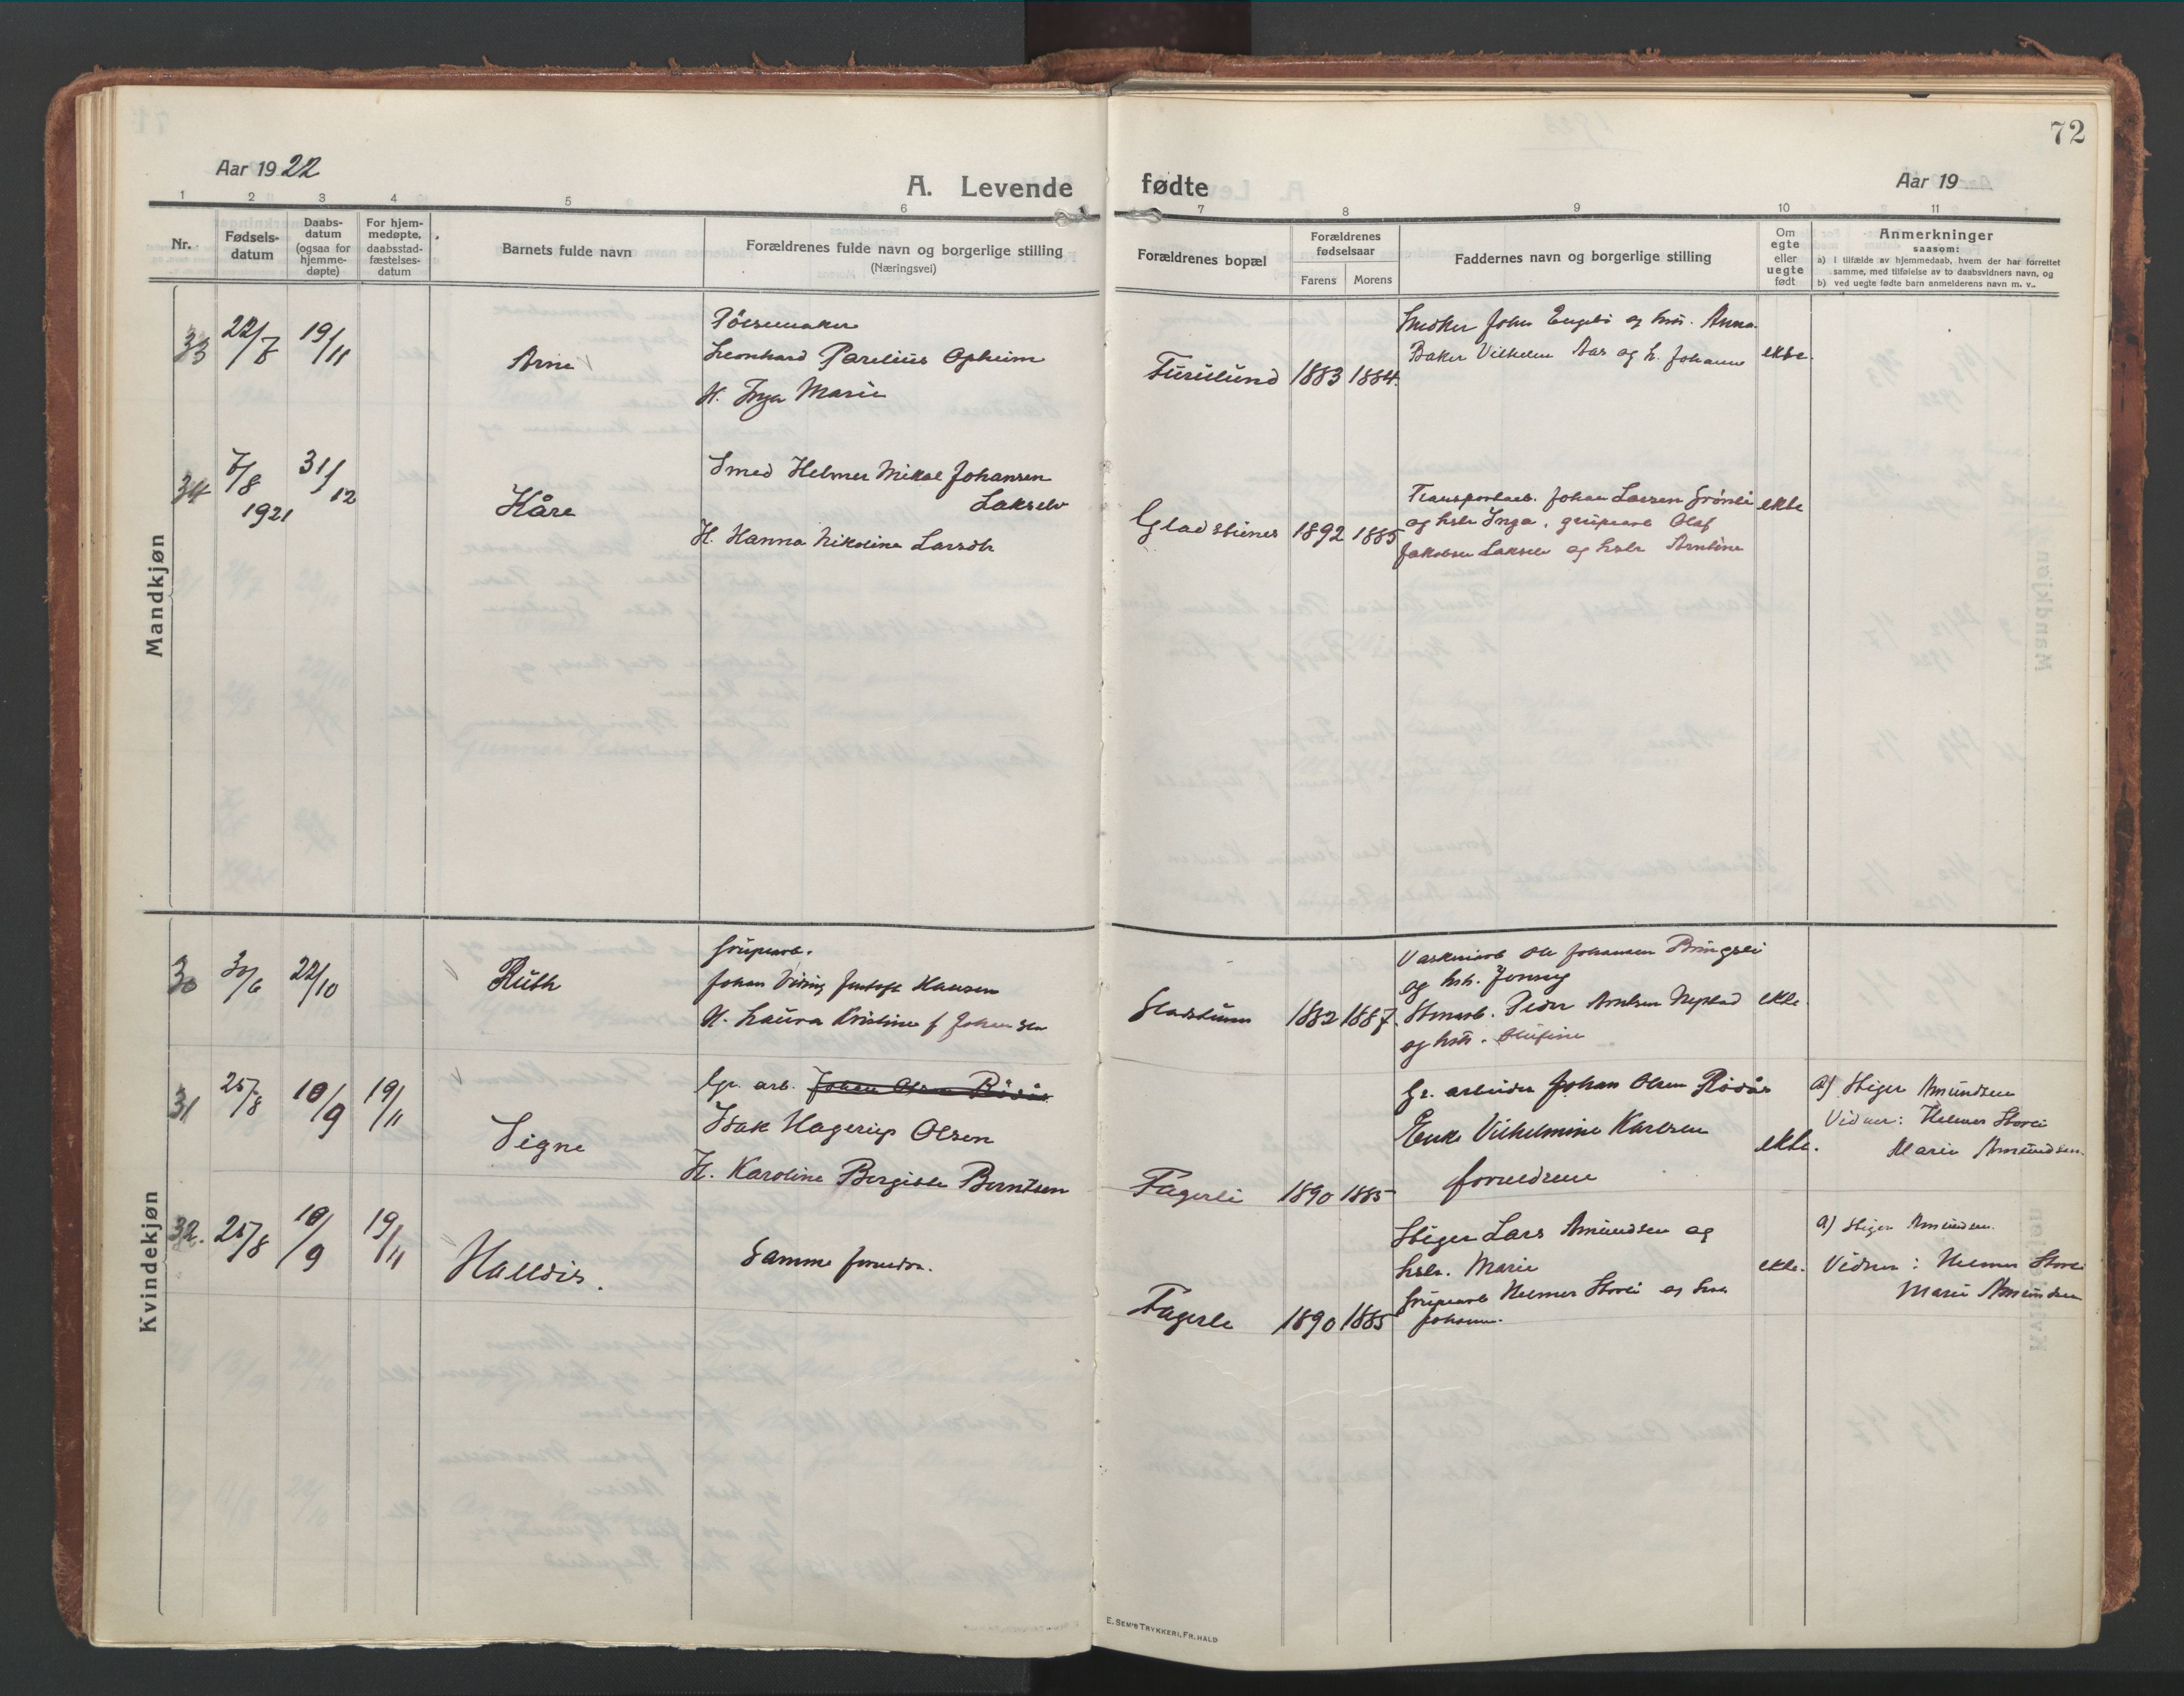 72
Aar 1922
A. Levende
fødte
Aar 19
1 2 3 4 5 6 7 8 9 10 11
Nr.
Fødsels-
datum
Daabs-
datum
(ogsaa for
hjemme-
døpte)
For hjem-
medøpte,
daabsstad-
fæstelses-
datum
Barnets fulde navn
Forældrenes fulde navn og borgerlige stilling
(Næringsvei)
Forældrenes bopæl
Forældrenes
fødselsaar
Farens Morens
Faddernes navn og borgerlige stilling
Om
egte
eller
uegte
født
Anmerkninger
saasom:
a) I tilfælde av hjemmedaab, hvem der har forrettet
samme, med tilføielse av to daabsvidners navn, og
b) ved uegte fødte barn anmelderens navn m. v..
Mandkjøn
33 22/7 19/11
Arne
Pölsemaker
Leonhard Parelius Opheim
H. Inga Marie
Furulund 1883 1884.
Snedker John Engebö og hus. Anna.
Baker Vilhelm Aas og h. Johanne ekte.
34 7/8 1921 31/12
Kåre
Smed Helmer Mikal Johansen
Lakselv
H. Hanna Nikoline Larsdtr
Gladstienes 1892 1885
Transportarb. Johan Larsen Grönli ekte
og hstr Inga, grupearb Olaf
Jakobsen Lakselv og hstr Arntine
Kvindekjøn
30 30/6 22/10
Ruth
Grupearb.
Johan Hansen
H. Laura Kristine f Johansen
1882 1887.
Vaskeriarb Ole Johansen Bringsli
og hstr. Jenny
Peder Arntsen ekte.
og hstr. Olufine
31 25/8 10/9 19/11
Signe
Gr. arb. Johan Olsen Rödås
Isak Hagerup Olsen
H. Karoline Bergitte Berntsen
Fagerli 1890 1885
Gr. arbeider Johan Olsen Rödås
Enke Vilhelmine Karlsen
ekte.
foreldrene
a) Stiger Amundsen
Vidner: Helmer Storli
Marie Amundsen.
32. 25/8 10/9 19/11
Halldis.
Samme foreldre.
Fagerli 1890 1885
Stiger Lars Amundsen og
hstr. Marie ekte.
Grupearb Helmer Storli og hus
Johanne.
a) Stiger Amundsen.
Vidner: Helmer Storli
Marie Amundsen
E. SEM'S TRYKKERI, FR.HALD